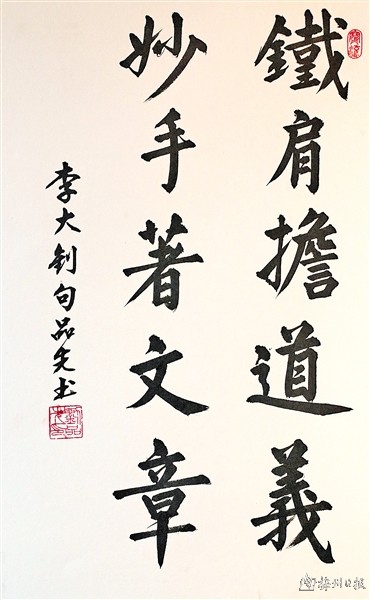 鐵肩擔道義
妙手著文章
李大釗句品先书
梅州日报